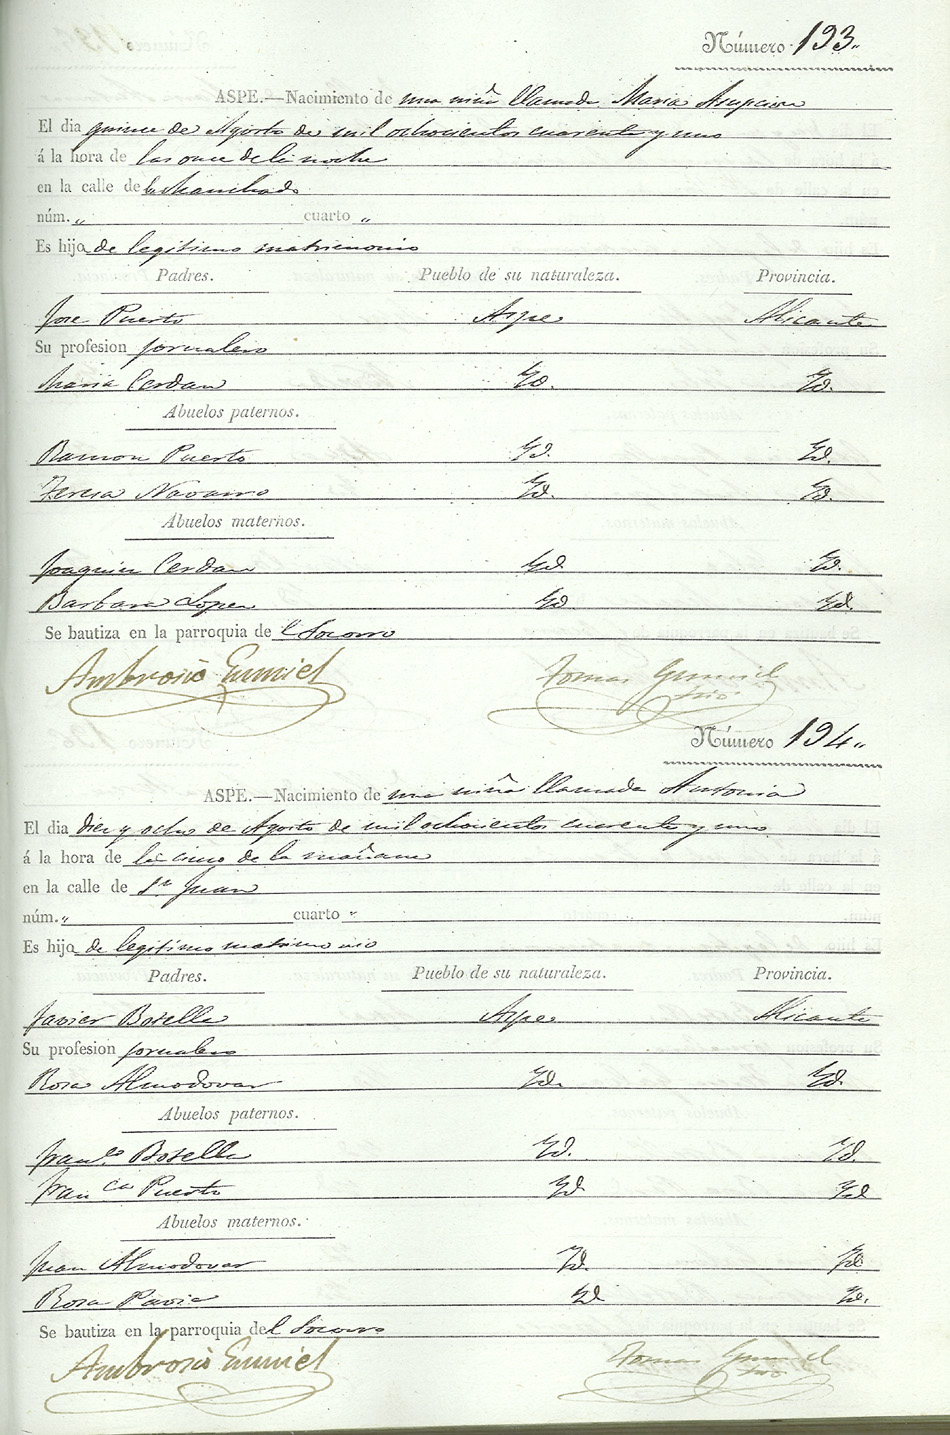 Número 193„
ASPE.—Nacimiento de una niña llamada Maria Asupcion
El dia quince de Agosto de mil ochocientos cuarenta y uno
á la hora de las once de la noche
en la calle de
núm. „ cuarto „
Es hijo de legitimo matrimonio
Padres. Pueblo de su naturaleza. Provincia.
Jose Puerto Aspe Alicante
Su profesion jornalero
Maria Cerdan Yd. Yd.
Abuelos paternos.
Ramon Puerto Yd. Yd.
Teresa Navarro Yd. Yd.
Abuelos maternos.
Joaquin Cerdan Yd Yd.
Barbara Lopez Yd Yd.
Se bautiza en la parroquia de l Socorro
Ambrosio Tomas
Número 194„
ASPE.—Nacimiento de una niña llamada Antonia
El dia diez y ocho de Agosto de mil ochocientos cuarenta y uno
á la hora de la cinco de la mañana
en la calle de Sn Juan
núm. „ cuarto „
Es hijo de legitimo matrimonio
Padres. Pueblo de su naturaleza. Provincia.
Javier Botella Aspe Alicante
Su profesion jornalero
Rosa Almodovar Yd. Yd.
Abuelos paternos.
Franco Botella Yd. Yd.
Franca Puerto Yd Yd
Abuelos maternos.
Juan Almodovar Yd. Yd
Rosa Pavia Yd Yd.
Se bautiza en la parroquia del Socorro
Ambrosio Tomas